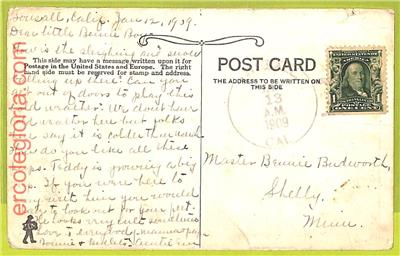 Bonsall, Calif. Jan 12, 1909.
Dear little Bennie Boy
How is the sleighing and snow
This side may have a message written upon it for
Postage in the United States and Europe. The right
hand side must be reserved for stamp and address.
up there? Can you
get out of doors to play this
cold weather? We don't have
weather here but folks
say it is colder than
do you like all these
Teddy is growing a big
If you were here to
visit him you would
to look out for your pet.
looks very cute sometimes
Love to everybody, mamma papa
Bonnie &
POST CARD
THE ADDRESS TO BE WRITTEN ON
THIS SIDE
13
A.M.
1909
CAL.
1
Master Bennie Budworth,
Shelly,
Minn.
ercolegloria.com